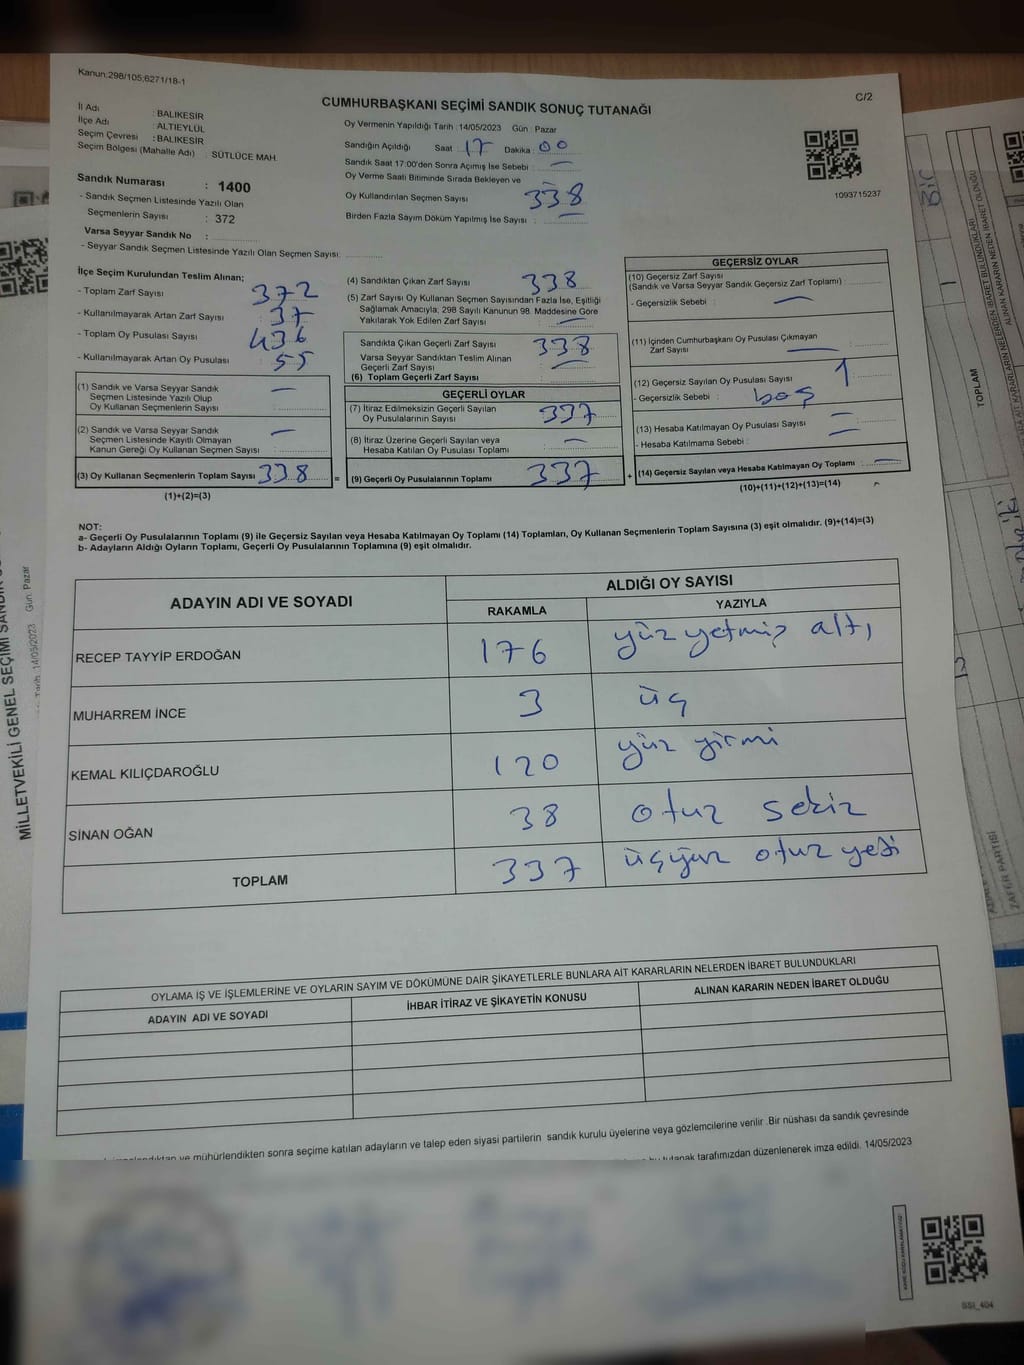 Kanun:298/105;6271/18-1
C/2
CUMHURBAŞKANI SEÇİMİ SANDIK SONUÇ TUTANAĞI
İl Adı : BALIKESİR
İlçe Adı : ALTIEYLÜL
Seçim Çevresi : BALIKESİR
Seçim Bölgesi (Mahalle Adı) : SÜTLÜCE MAH.
Sandık Numarası : 1400
- Sandık Seçmen Listesinde Yazılı Olan
Seçmenlerin Sayısı : 372
Varsa Seyyar Sandık No :
- Seyyar Sandık Seçmen Listesinde Yazılı Olan Seçmen Sayısı:
Oy Vermenin Yapıldığı Tarih :14/05/2023 Gün : Pazar
Sandığın Açıldığı Saat : 17 Dakika : 00
Sandık Saat 17:00'den Sonra Açımış İse Sebebi : —
Oy Verme Saati Bitiminde Sırada Bekleyen ve
Oy Kullandırılan Seçmen Sayısı 338
Birden Fazla Sayım Döküm Yapılmış İse Sayısı : —
1093715237
İlçe Seçim Kurulundan Teslim Alınan;
- Toplam Zarf Sayısı 372
- Kullanılmayarak Artan Zarf Sayısı : 37
- Toplam Oy Pusulası Sayısı 436
- Kullanılmayarak Artan Oy Pusulası : 55
(1) Sandık ve Varsa Seyyar Sandık
Seçmen Listesinde Yazılı Olup
Oy Kullanan Seçmenlerin Sayısı : —
(2) Sandık ve Varsa Seyyar Sandık
Seçmen Listesinde Kayıtlı Olmayan
Kanun Gereği Oy Kullanan Seçmen Sayısı : —
(3) Oy Kullanan Seçmenlerin Toplam Sayısı 338
(1)+(2)=(3)
(4) Sandıktan Çıkan Zarf Sayısı 338
(5) Zarf Sayısı Oy Kullanan Seçmen Sayısından Fazla İse, Eşitliği
Sağlamak Amacıyla; 298 Sayılı Kanunun 98. Maddesine Göre
Yakılarak Yok Edilen Zarf Sayısı : —
Sandıkta Çıkan Geçerli Zarf Sayısı 338
Varsa Seyyar Sandıktan Teslim Alınan
Geçerli Zarf Sayısı : —
(6) Toplam Geçerli Zarf Sayısı
GEÇERLİ OYLAR
(7) İtiraz Edilmeksizin Geçerli Sayılan
Oy Pusulalarının Sayısı : 337
(8) İtiraz Üzerine Geçerli Sayılan veya
Hesaba Katılan Oy Pusulası Toplamı —
= (9) Geçerli Oy Pusulalarının Toplamı 337
GEÇERSİZ OYLAR
(10) Geçersiz Zarf Sayısı
(Sandık ve Varsa Seyyar Sandık Geçersiz Zarf Toplamı) :
- Geçersizlik Sebebi : —
(11) İçinden Cumhurbaşkanı Oy Pusulası Çıkmayan
Zarf Sayısı —
(12) Geçersiz Sayılan Oy Pusulası Sayısı 1
- Geçersizlik Sebebi : boş
(13) Hesaba Katılmayan Oy Pusulası Sayısı —
- Hesaba Katılmama Sebebi : —
+ (14) Geçersiz Sayılan veya Hesaba Katılmayan Oy Toplamı —
(10)+(11)+(12)+(13)=(14)
NOT:
a- Geçerli Oy Pusulalarının Toplamı (9) ile Geçersiz Sayılan veya Hesaba Katılmayan Oy Toplamı (14) Toplamları, Oy Kullanan Seçmenlerin Toplam Sayısına (3) eşit olmalıdır. (9)+(14)=(3)
b- Adayların Aldığı Oyların Toplamı, Geçerli Oy Pusulalarının Toplamına (9) eşit olmalıdır.
ADAYIN ADI VE SOYADI ALDIĞI OY SAYISI
RAKAMLA YAZIYLA
RECEP TAYYİP ERDOĞAN 176 yüz yetmiş altı
MUHARREM İNCE 3 üç
KEMAL KILIÇDAROĞLU 120 yüz yirmi
SİNAN OĞAN 38 otuz sekiz
TOPLAM 337 üçyüz otuz yedi
OYLAMA İŞ VE İŞLEMLERİNE VE OYLARIN SAYIM VE DÖKÜMÜNE DAİR ŞİKAYETLERLE BUNLARA AİT KARARLARIN NELERDEN İBARET BULUNDUKLARI
ADAYIN ADI VE SOYADI İHBAR İTİRAZ VE ŞİKAYETİN KONUSU ALINAN KARARIN NEDEN İBARET OLDUĞU
ve mühürlendikten sonra seçime katılan adayların ve talep eden siyasi partilerin sandık kurulu üyelerine veya gözlemcilerine verilir .Bir nüshası da sandık çevresinde
tutanak tarafımızdan düzenlenerek imza edildi. 14/05/2023
SSI_404
MİLLETVEKİLİ GENEL SEÇİMİ
14/05/2023 Gün: Pazar
TOPLAM
ALINAN KARARIN NEDEN İBARET OLDUĞU
ZAFER PARTİSİ